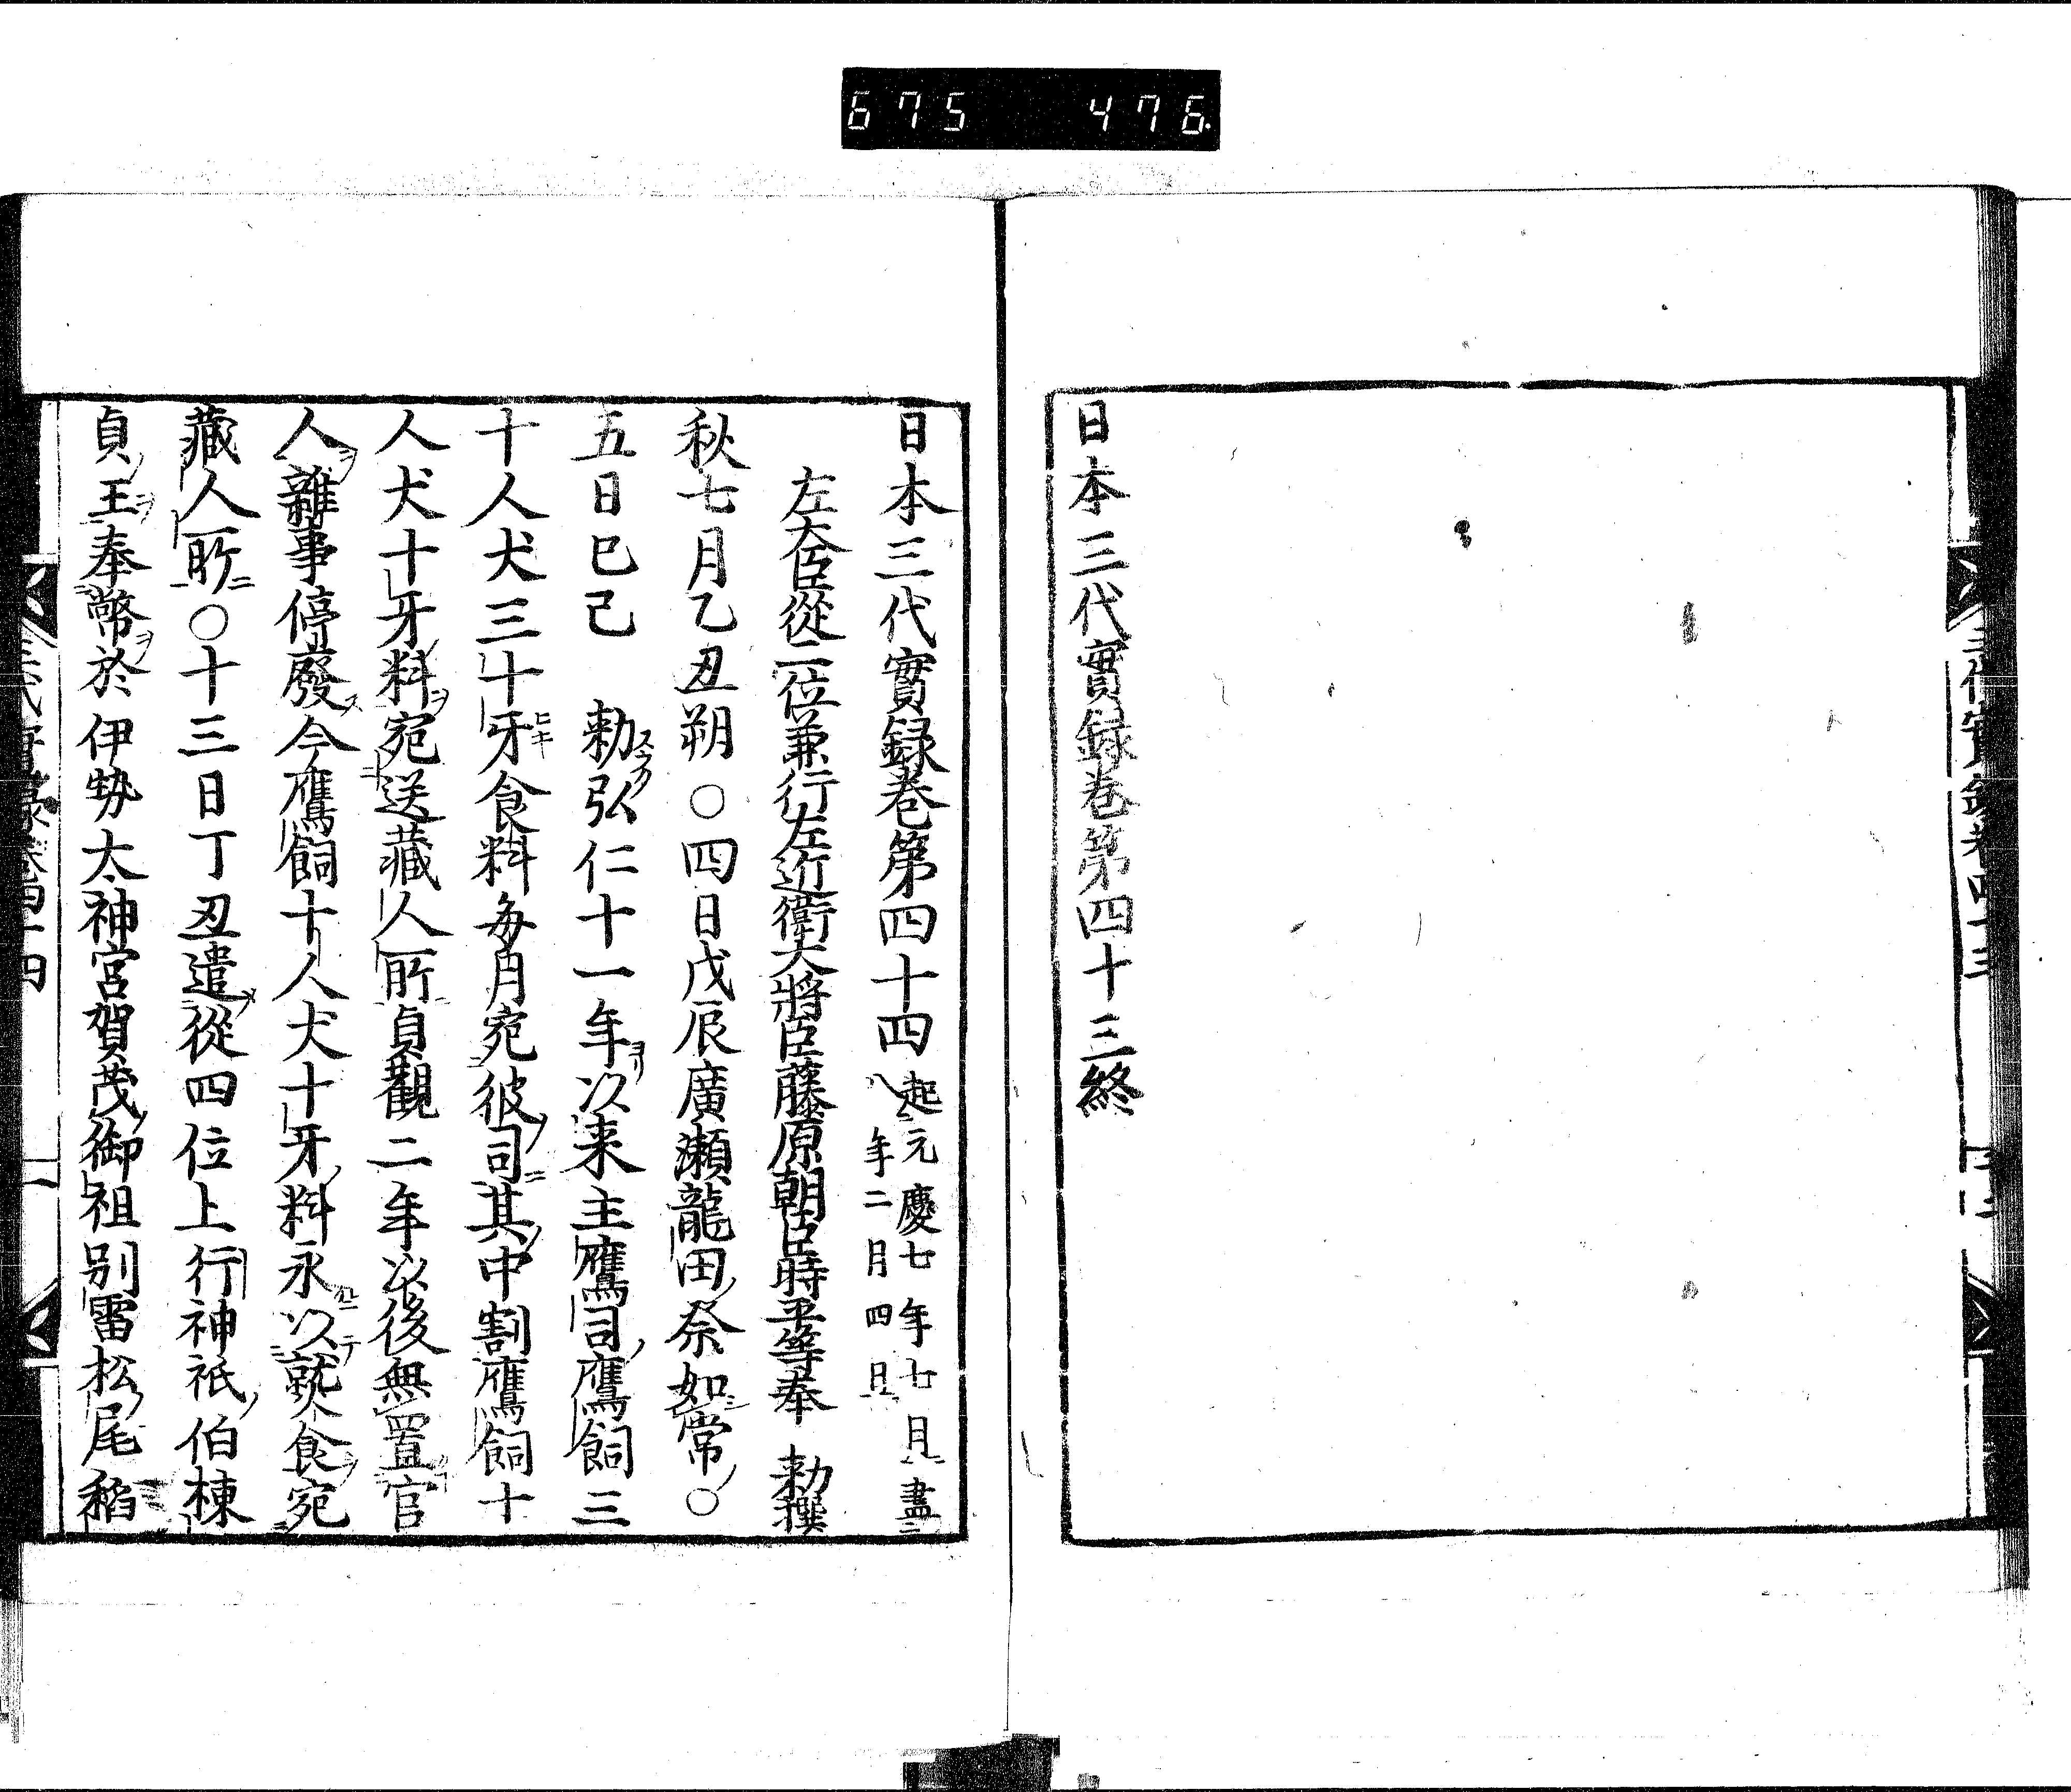 675 476
日本三代實録卷第四十三終
日本三代實録卷第四十四 起元慶七年七月盡八年二月四日
左大臣從二位兼行左近衛大將臣藤原朝臣時平等奉 勅撰
秋七月乙丑朔○四日戊辰廣瀬龍田祭如常○
五日巳己 勅弘仁十一年以来主鷹司鷹飼三
十人犬三十牙食料每月宛彼司其中割鷹飼十
人犬十牙料宛送藏人所貞觀二年以後無置官
人雜事停廢今鷹飼十人犬十牙料永以就食宛
藏人所○十三日丁丑遣從四位上行神祇伯棟
貞王奉幣於伊勢太神宮賀茂御祖别雷松尾稻